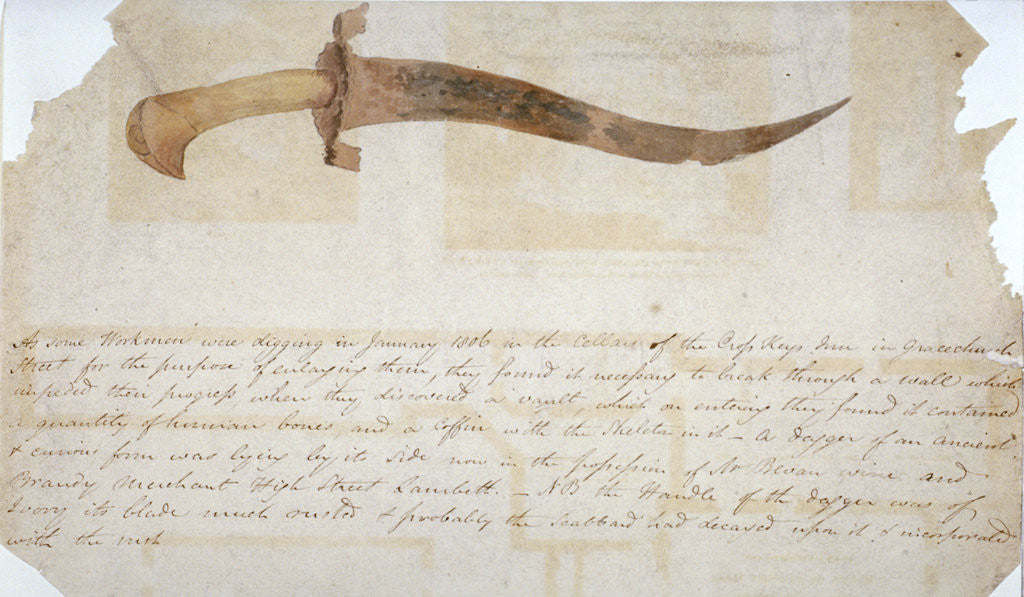 As some Workmen were digging in January 1806 in the Cellars of the Cross Keys Inn in Gracechurch
Street for the purpose of enlarging them, they found it necessary to break through a wall which
impeded their progress when they discovered a vault, which on entering they found it contained
a quantity of human bones, and a Coffin with the Skeleton in it – A Dagger of an ancient
& curious form was lying by its side now in the possession of Mr Bevan wine and
Brandy Merchant High Street Lambeth. – NB the Handle of the dagger was of
Ivory its blade much rusted & probably the Scabbard had decayed upon it & incorporated
with the rust